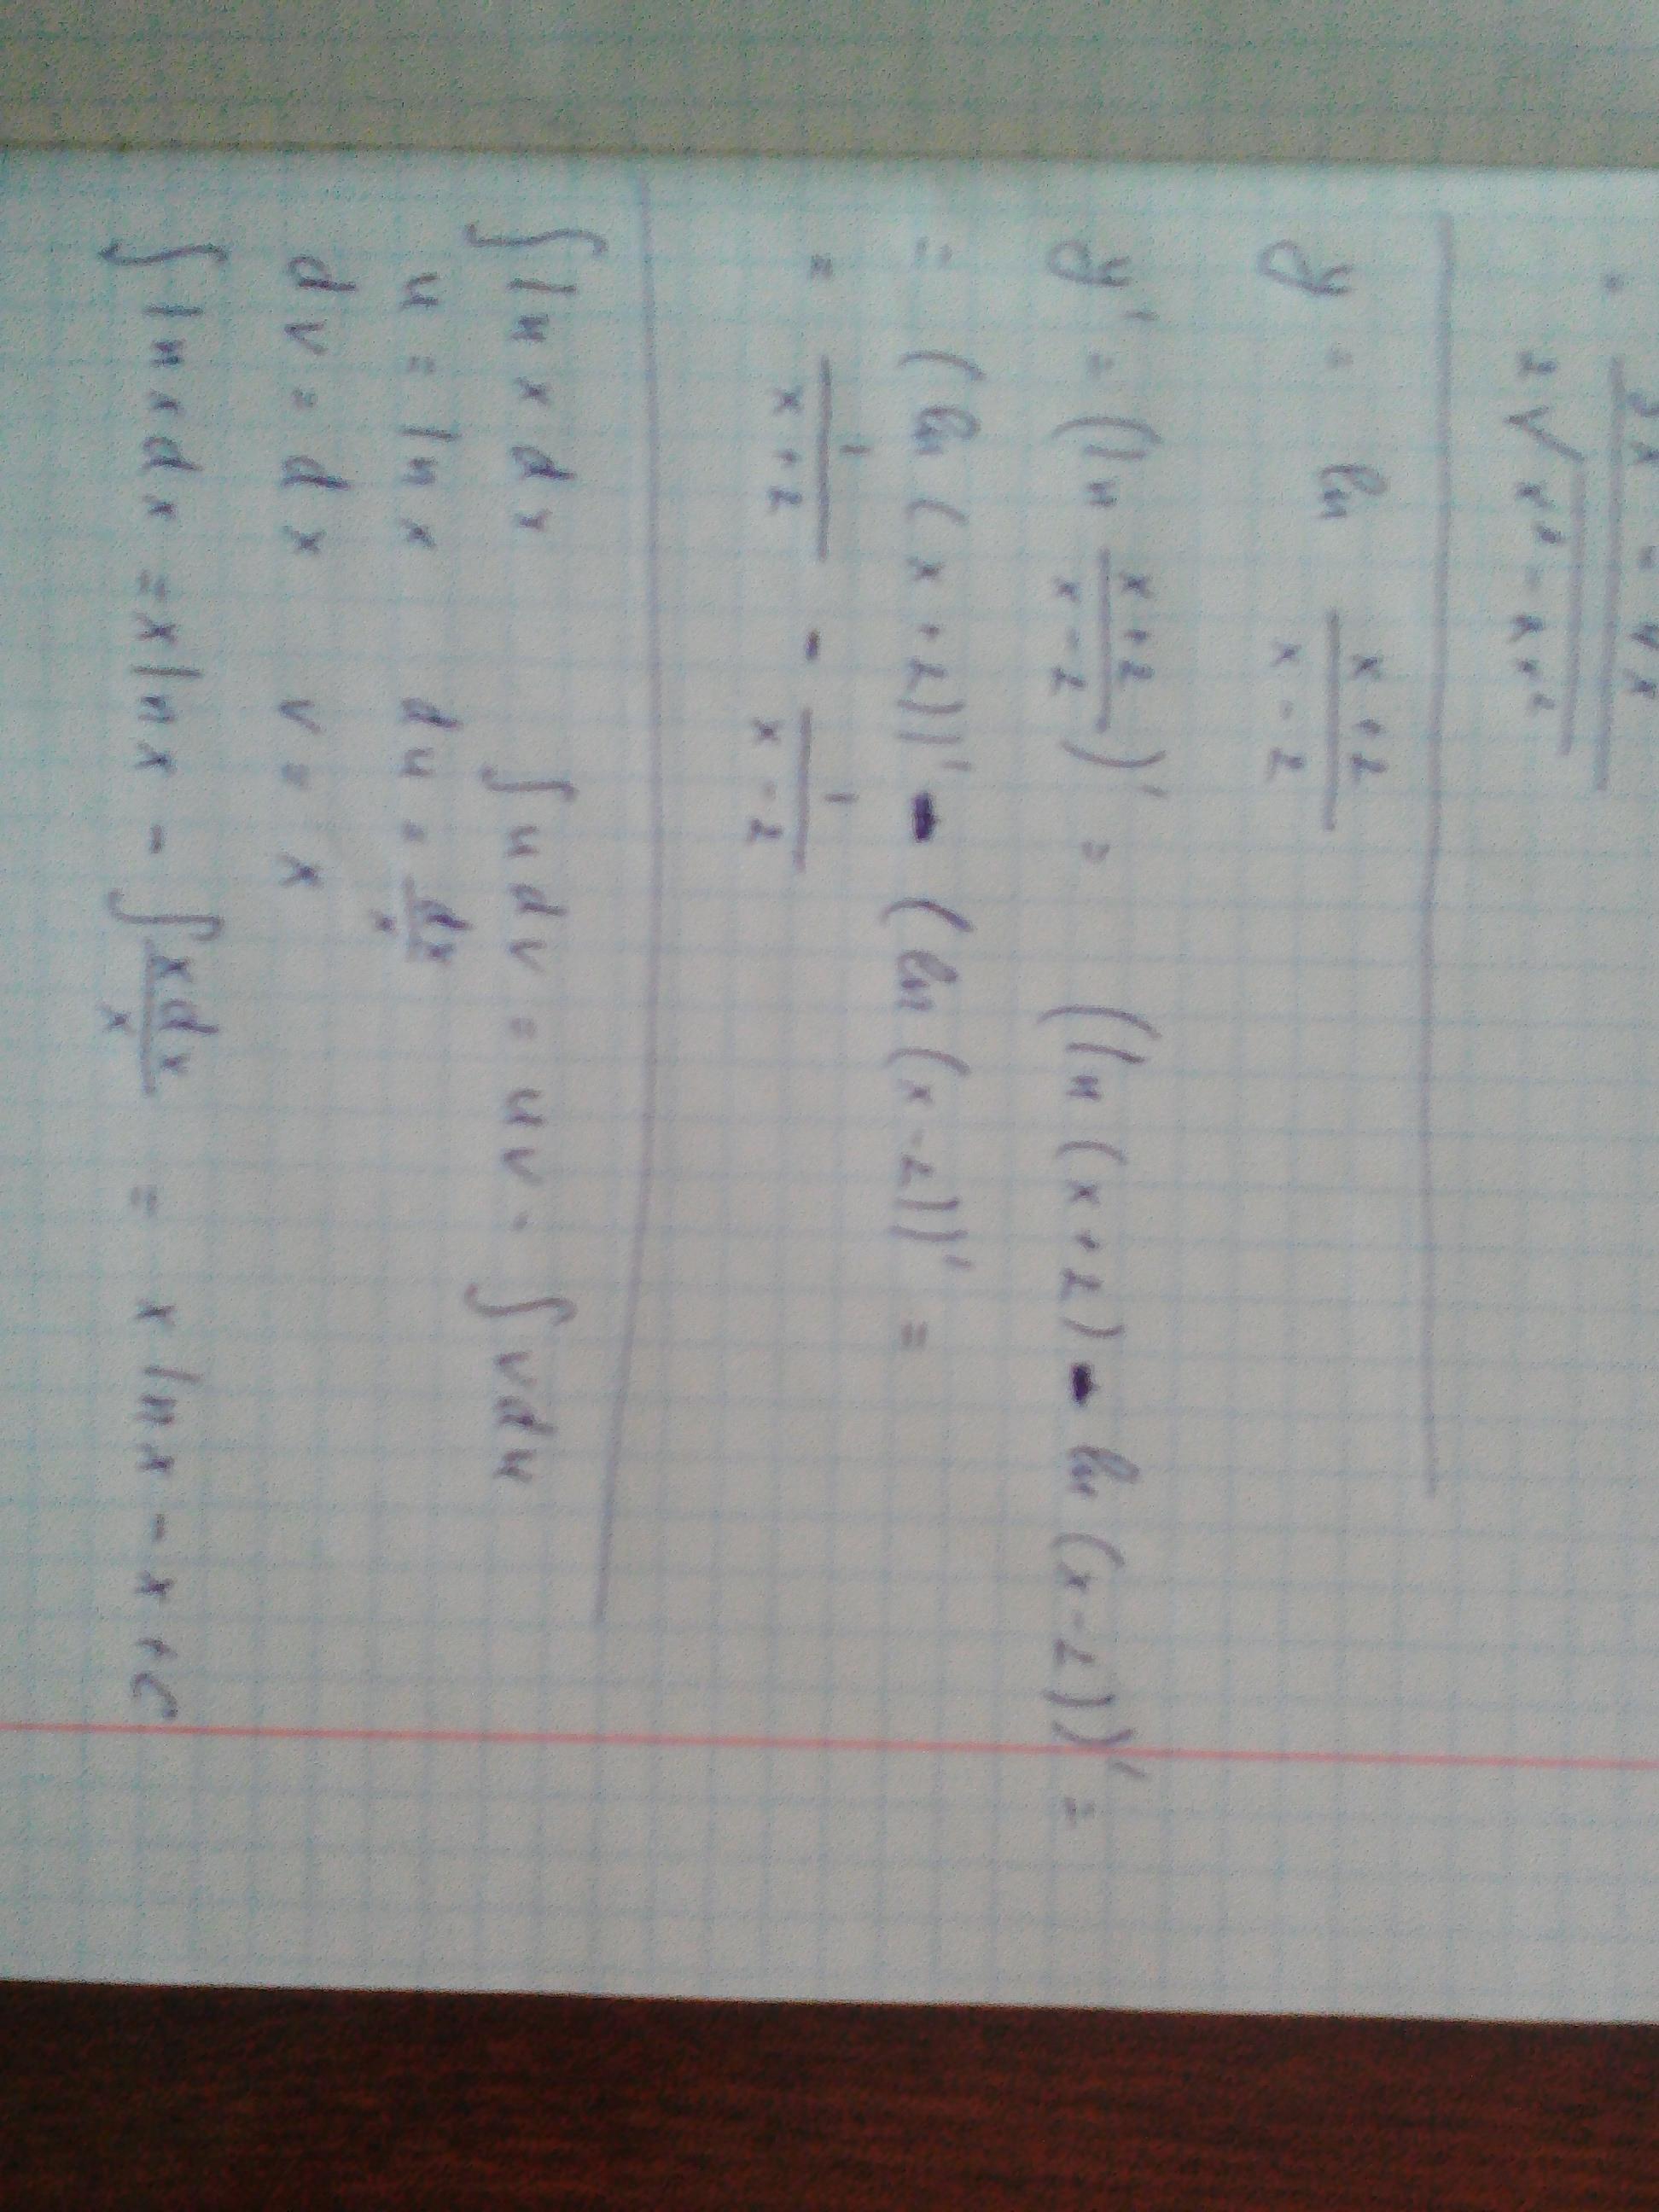 = (3x² - 4x) / (2√(x³ - 2x²))
y = ln (x+2)/(x-2)
y' = (ln (x+2)/(x-2))' = (ln(x+2) - ln(x-2))' =
= (ln(x+2))' - (ln(x-2))' =
= 1/(x+2) - 1/(x-2)
∫ ln x dx ∫ u dv = uv - ∫ v du
u = ln x du = dx/x
dv = dx v = x
∫ ln x dx = x ln x - ∫ x dx/x = x ln x - x + C